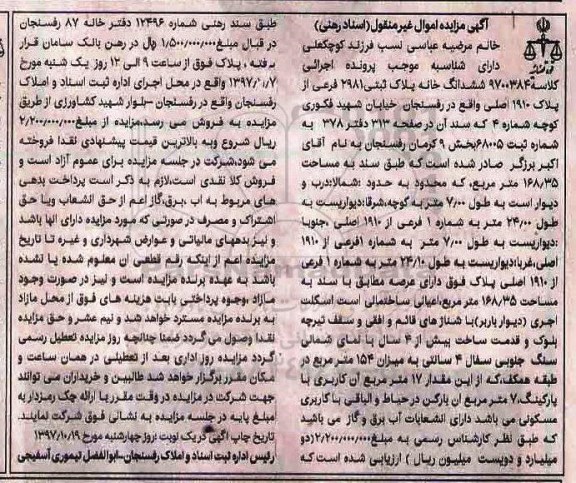 آگهی مزایده اموال غیر منقول (اسناد رهنی)
خانم مرضیه عباسی نسب فرزند کوچکعلی
دارای شناسبه موجب پرونده اجرائی
کلاسه ۹۷۰۰۳۸۴ ششدانگ خانه پلاک ثبتی ۲۹۸۱ فرعی از
پلاک ۱۹۱۰ اصلی واقع در رفسنجان خیابان شهید فکوری
کوچه شماره ۴ که سند آن در صفحه ۳۱۳ دفتر ۳۷۸ به
شماره ثبت ۶۸۰۰۵ بخش ۹ کرمان رفسنجان به نام آقای
اکبر برزگر صادر شده است که طبق سند به مساحت
۱۶۸/۳۵ متر مربع، که محدود به حدود :شمالا:درب و
دیوار است به طول ۷/۰۰ متر به کوچه،شرقا:دیواریست به
طول ۲۴/۰۰ متر به شماره ۱ فرعی از ۱۹۱۰ اصلی ،جنوبا
:دیواریست به طول ۷/۰۰ متر به شماره ۱فرعی از ۱۹۱۰
اصلی،غربا:دیواریست به طول ۲۴/۱۰ متر به شماره ۱ فرعی
از ۱۹۱۰ اصلی پلاک فوق دارای عرصه مطابق با سند به
مساحت ۱۶۸/۳۵ متر مربع،اعیانی ساختمانی است اسکلت
اجری (دیوار باربر)با شناژ های قائم و افقی و سقف تیرچه
بلوک و قدمت ساخت پیش از ۴ سال با نمای شمالی
سنگ جنوبی سفال ۴ سانتی به میزان ۱۵۴ متر مربع در
طبقه همکف،که از این مقدار ۱۷ متر مربع آن کاربری با
پارکینگ،۷ متر مربع آن بارکن در حیاط و الباقی با کاربری
مسکونی می باشد دارای انشعابات آب برق و گاز می باشید
که طبق نظر کارشناس رسمی به مبلغ ۲/۲۰۰/۰۰۰/۰۰۰(دو
میلیارد و دویست میلیون ریال ) ارزیابی شده است که
طبق سند رهنی شماره ۱۲۴۹۶ دفتر خانه ۸۷ رفسنجان
در قبال مبلغ ۱/۵۰۰/۰۰۰/۰۰۰ ریال در رهن بانک سامان قرار
گرفته ، پلاک فوق از ساعت ۹ الی ۱۲ روز یک شنبه مورخ
واقع در محل اجرای اداره ثبت اسناد و املاک
رفسنجان واقع در رفسنجان -بلوار شهید کشاورزی از طریق
مزایده به فروش می رسد،مزایده از مبلغ ۲/۲۰۰/۰۰۰/۰۰۰
ریال شروع وبه بالاترین قیمت پیشنهادی نقدا فروخته
می شود،شرکت در جلسه مزایده برای عموم آزاد است و
فروش کلا نقدی است،لازم به ذکر است پرداخت بدهی
های مربوط به اب ،برق،گاز اعم از حق انشعاب ویا حق
اشتراک و مصرف در صورتی که مورد مزایده دارای آنها باشد
و نیز بدهیهای مالیاتی و عوارض شهرداری و غیره تا تاریخ
مزایده اعم از اینکه رقم قطعی ان معلوم شده یا نشده
باشد به عهده برنده مزایده است و نیز در صورت وجود
مازاد ،وجوه پرداختی بابت هزینه های فوق از محل مازاد
به برنده مزایده مسترد خواهد شد و نیم عشر و حق مزایده
نقدا وصول می گردد ضمنا چنانچه روز مزایده تعطیل رسمی
گردد مزایده روز اداری بعد از تعطیلی در همان ساعت و
مکان مقرر برگزار خواهد شد طالبین و خریداران می توانند
جهت شرکت در مزایده در وقت مقرر با ارائه چک رمزدار به
مبلغ پایه در جلسه مزایده به نشانی فوق شرکت نمایند.
تاریخ چاپ آگهی در یک نوبت :روز چهارشنبه مورخ ۱۳۹۷/۱۰/۱۹
رئیس اداره ثبت اسناد و املاک رفسنجان-ابوالفضل تیموری آسفیچی